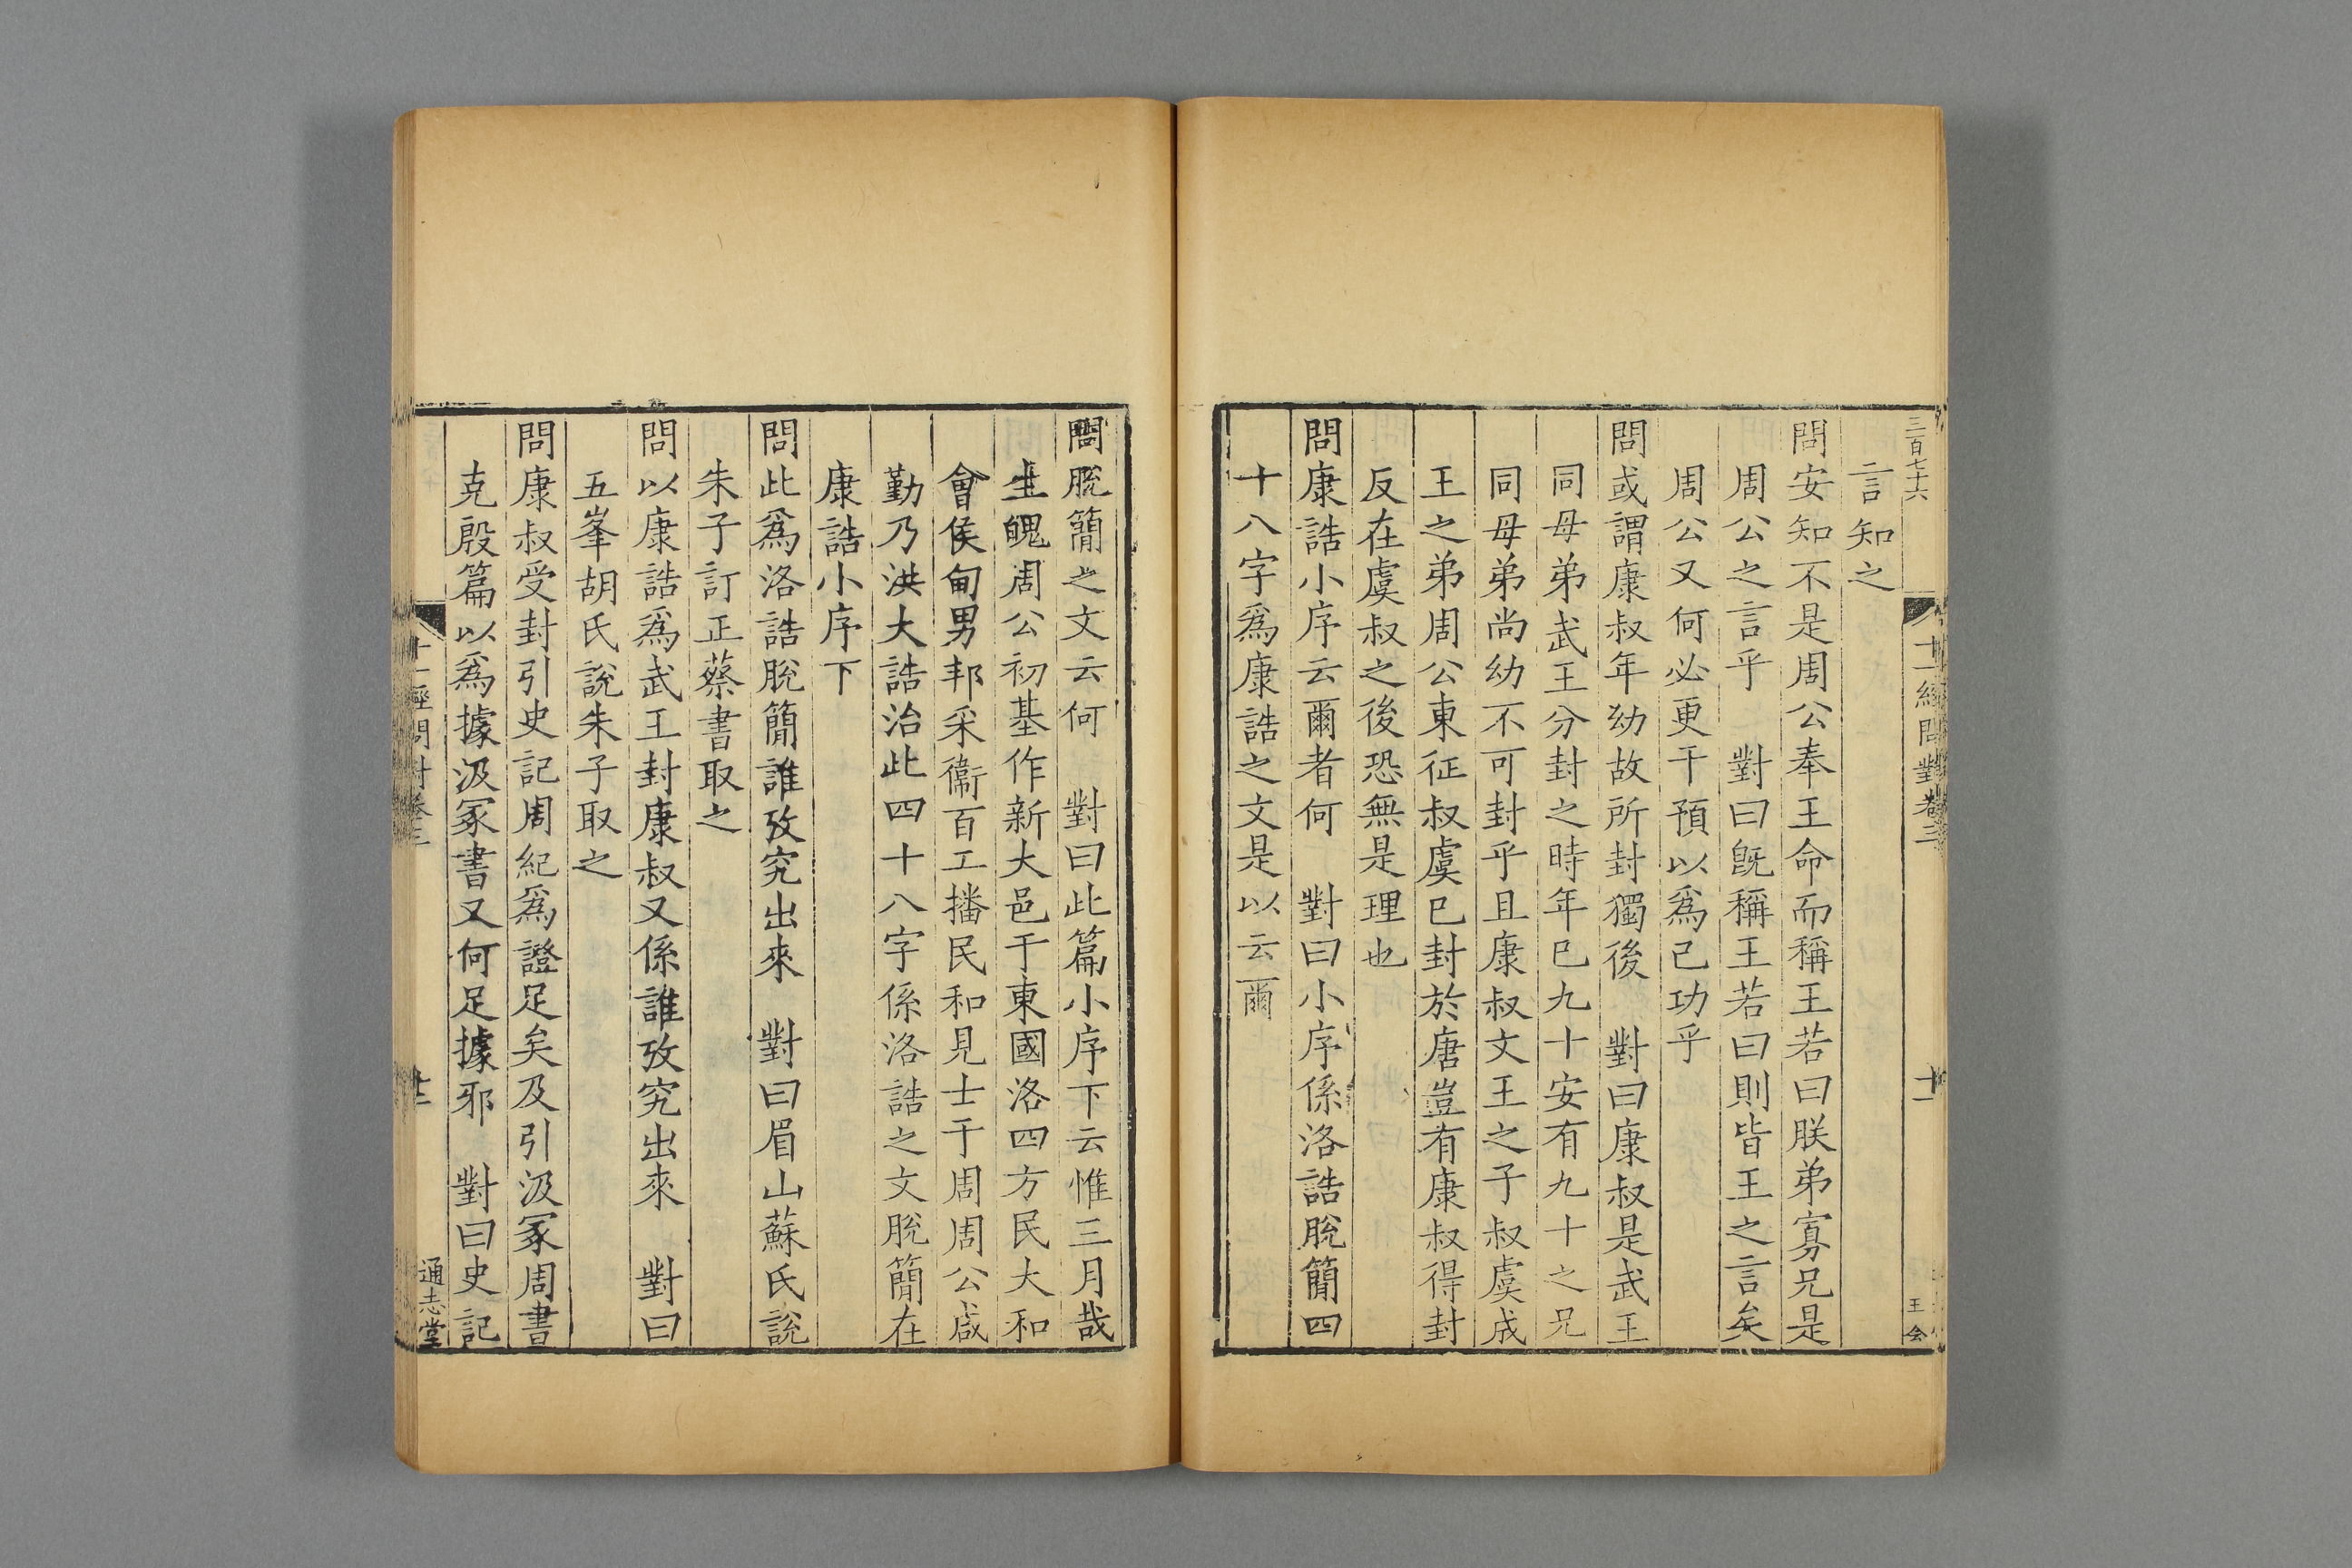 三百七十六
十一經問對卷三
十一
王公
言知之
問安知不是周公奉王命而稱王若曰朕弟寡兄是
周公之言乎　對曰旣稱王若曰則皆王之言矣
周公又何必更干預以爲己功乎
問或謂康叔年幼故所封獨後　對曰康叔是武王
同母弟武王分封之時年已九十安有九十之兄
同母弟尚幼不可封乎且康叔文王之子叔虞成
王之弟周公東征叔虞已封於唐豈有康叔得封
反在虞叔之後恐無是理也
問康誥小序云爾者何　對曰小序係洛誥脫簡四
十八字爲康誥之文是以云爾
問脫簡之文云何　對曰此篇小序下云惟三月哉
生魄周公初基作新大邑于東國洛四方民大和
會侯甸男邦采衞百工播民和見士于周周公咸
勤乃洪大誥治此四十八字係洛誥之文脫簡在
康誥小序下
問此爲洛誥脫簡誰攷究出來　對曰眉山蘇氏說
朱子訂正蔡書取之
問以康誥爲武王封康叔又係誰攷究出來　對曰
五峯胡氏說朱子取之
問康叔受封引史記周紀爲證足矣及引汲冢周書
克殷篇以爲據汲冢書又何足據邪　對曰史記
十一經問對卷三
十一
通志堂